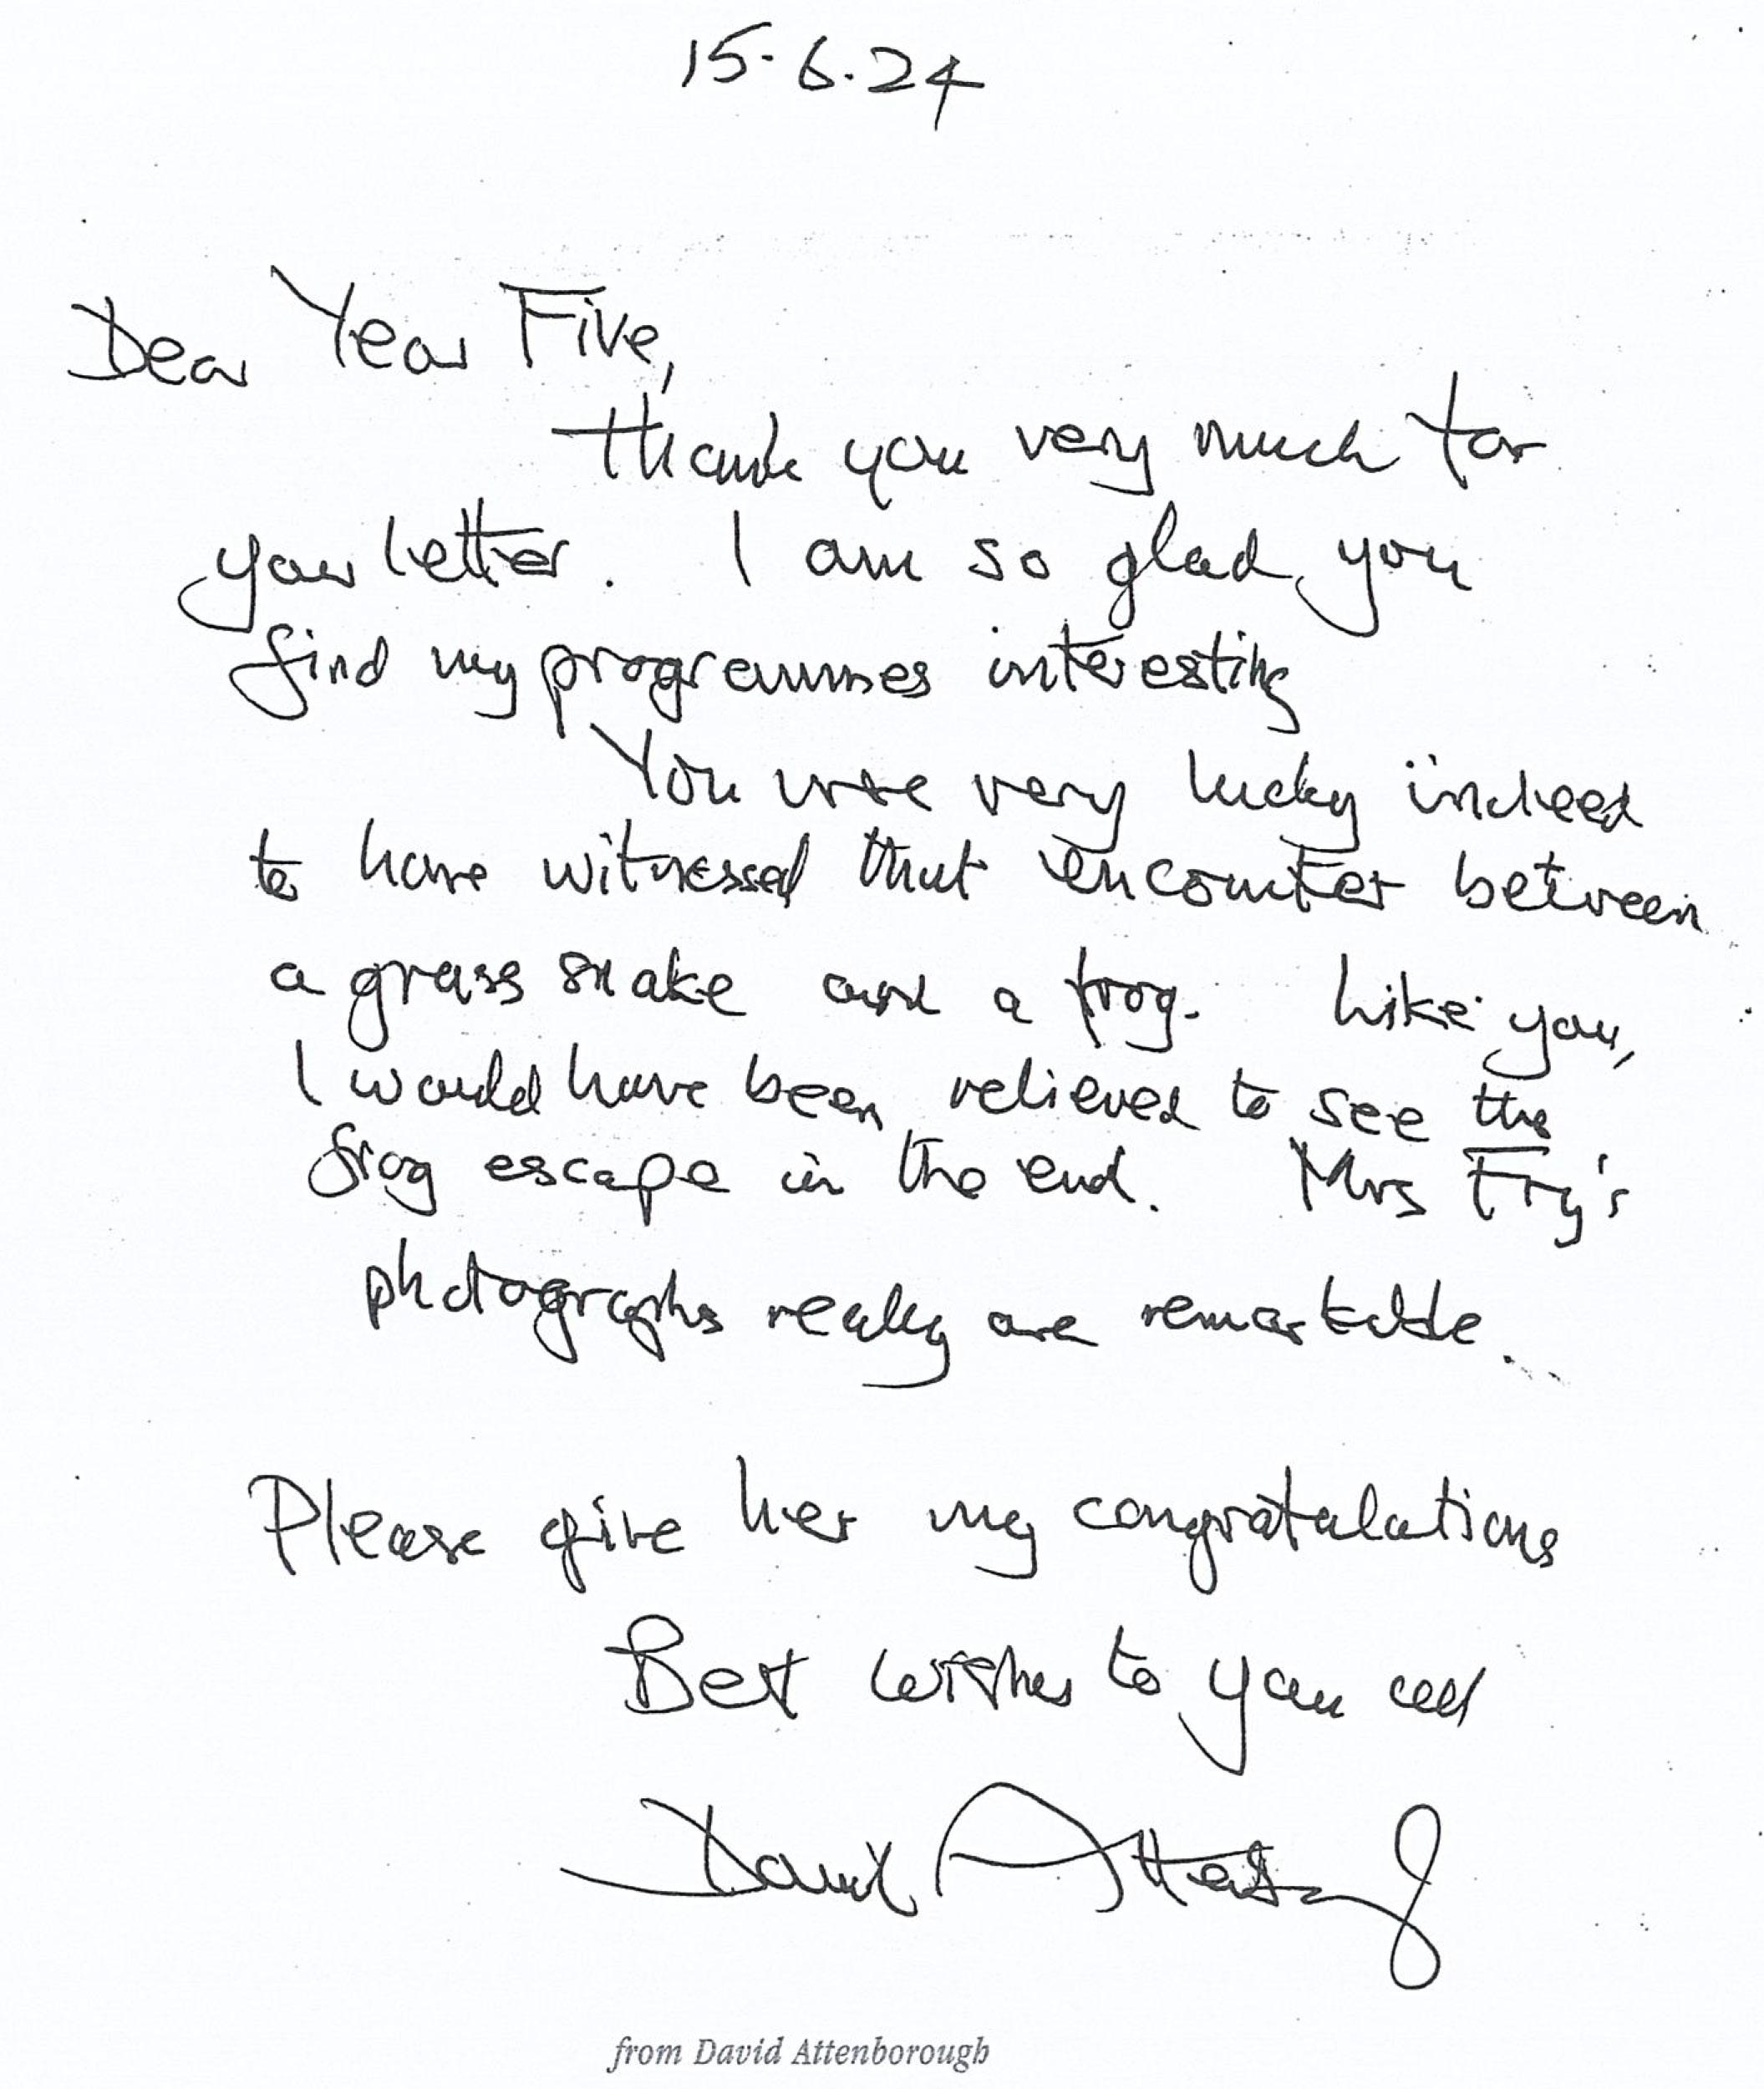 15.6.24
Dear Year Five,
thank you very much for
your letter. I am so glad you
find my programmes interesting
You were very lucky indeed
to have witnessed that encounter between
a grass snake and a frog. Like you,
I would have been relieved to see the
frog escape in the end. Mrs Fry's
photographs really are remarkable.
Please give her my congratulations
Best wishes to you all
David Attenborough
from David Attenborough